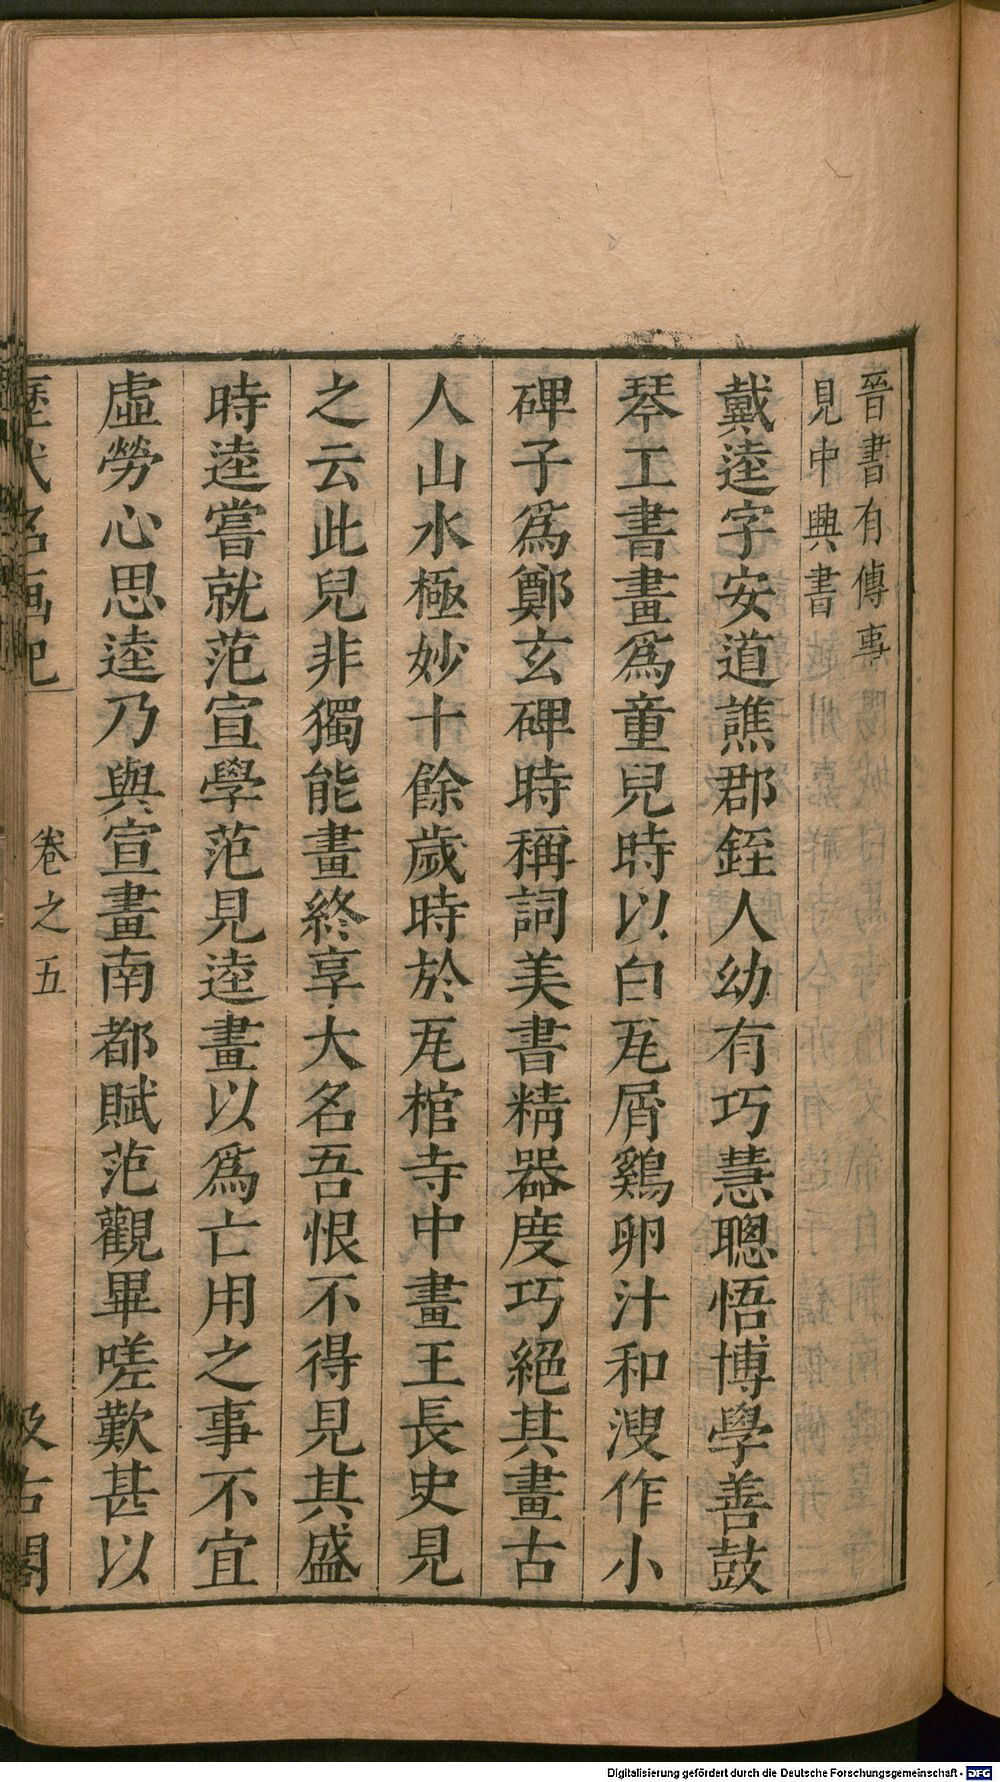 晉書有傳事
見中興書
戴逵字安道譙郡銍人幼有巧慧聰悟博學善鼓
琴工書畫爲童兒時以白瓦屑鷄卵汁和溲作小
碑子爲鄭玄碑時稱詞美書精器度巧絕其畫古
人山水極妙十餘歲時於瓦棺寺中畫王長史見
之云此兒非獨能畫終享大名吾恨不得見其盛
時逵嘗就范宣學范見逵畫以爲亡用之事不宜
虛勞心思逵乃與宣畫南都賦范觀畢嗟歎甚以
歷代名画記 卷之五 汲古閣
Digitalisierung gefördert durch die Deutsche Forschungsgemeinschaft - DFG